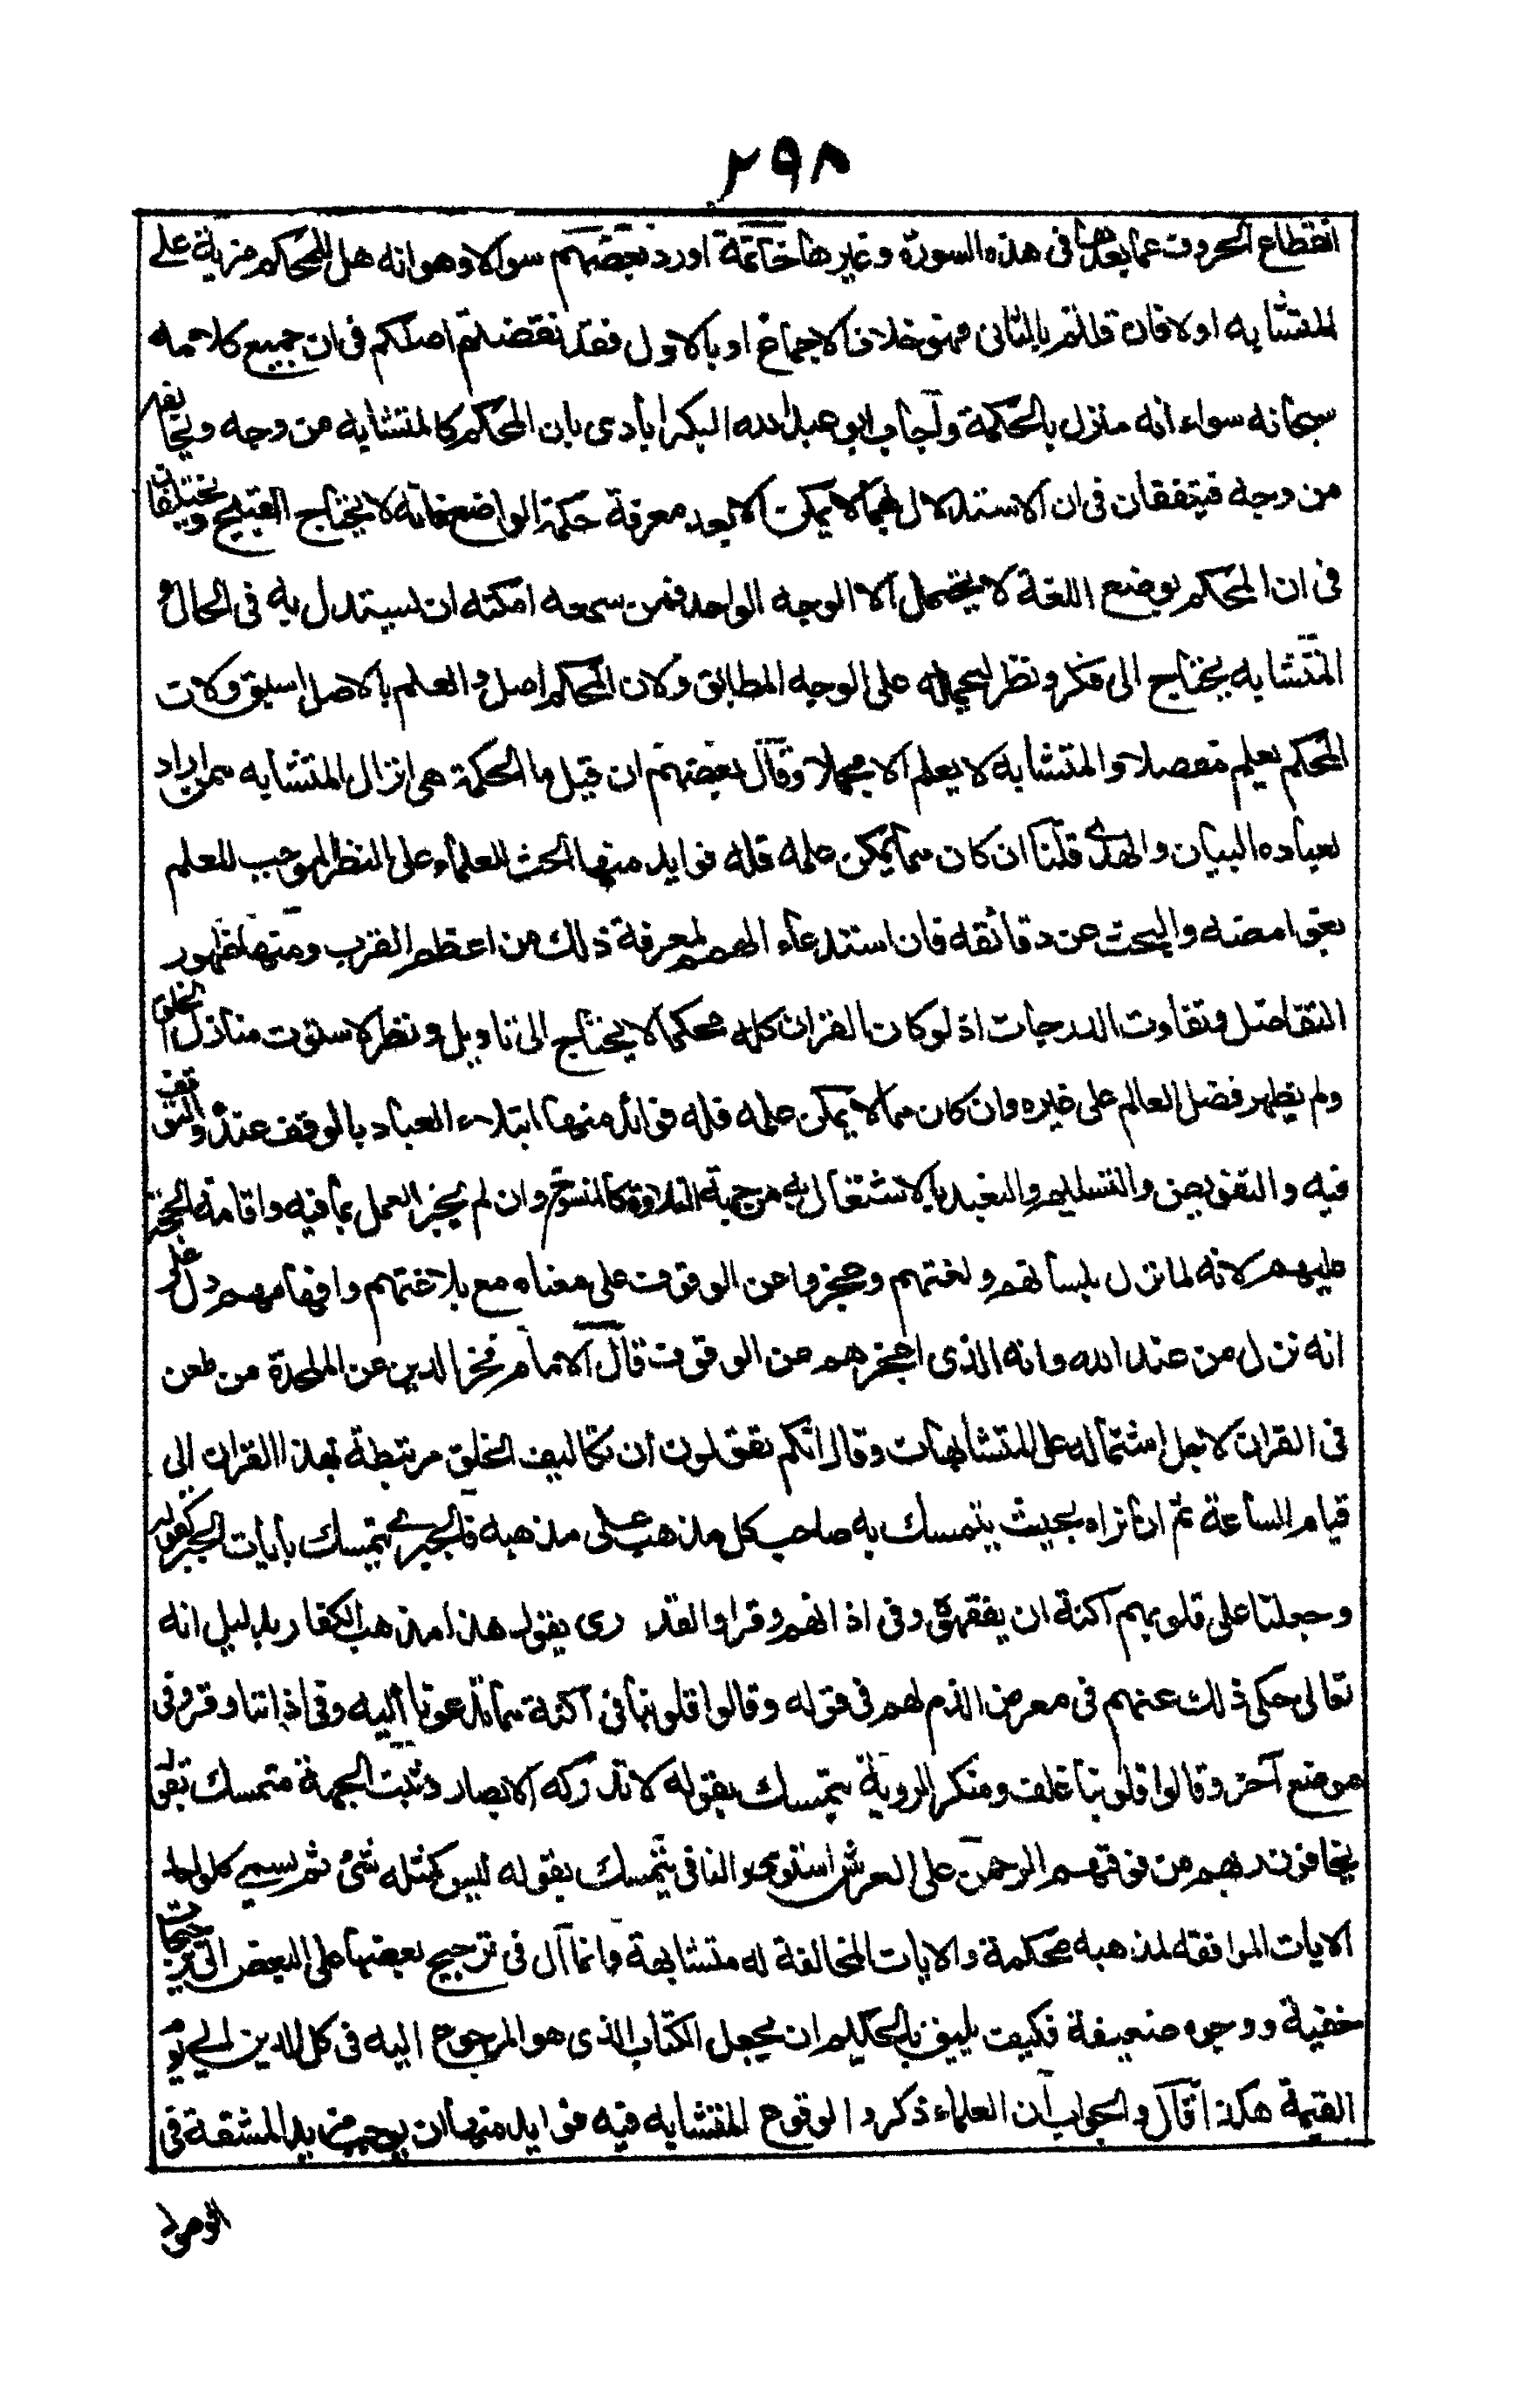 ٢٩٨
انقطاع الحروف عما بعدها فى هذه السورة وغيرها خاتمة اورد بعضهم سوالا وهو انه هل للمحكم مزية على
المتشابه او لا فان قلتم بالثانى فهو خلاف الاجماع او بالاول فقد نقضتم اصلكم فى ان جميع كلامه
سبحانه سواء انه منزل بالحكمة واجاب ابو عبدالله البكرابادى بان المحكم كالمتشابه من وجه ويخالفه
من وجه فيتفقان فى ان الاستدلال بهما لا يمكن الا بعد معرفة حكمة الواضع فانه لا يختاج القبيح ويختلفان
فى ان المحكم بوضع اللغة لا يحتمل الا الوجه الواحد فمن سمعه امكنه ان يستدل به فى الحال و
المتشابه يحتاج الى فكر ونظر ليحمله على الوجه المطابق ولان المحكم اصل والعلم بالاصل اسبق ولان
المحكم يعلم مفصلا والمتشابه لا يعلم الا مجملا وقال بعضهم ان قيل ما الحكمة هى انزال المتشابه ممن اراد
لعباده البيان والهدى قلنا ان كان مما يمكن علمه فله فوايد منها الحث للعلماء على النظر الموجب للعلم
بغوامضه والبحث عن دقائقه فان استدعاء الهمم لمعرفة ذلك من اعظم القرب ومنها ظهور
التفاضل وتفاوت الدرجات اذ لو كان القران كله محكما لا يحتاج الى تاويل ونظر لاستوت منازل الخلق
ولم يظهر فضل العالم على غيره وان كان مما لا يمكن علمه فله فوائد منها ابتلاء العباد بالوقف عنده والتوقف
فيه والتفويض والتسليم والتعبد بالاشتغال به من جهة التلاوة كالمنسوخ وان لم يجز العمل بما فيه واقامة الحجة
عليهم لانه لما نزل بلسانهم ولغتهم وعجزوا عن الوقوف على معناه مع بلاغتهم وافهامهم دل على
انه نزل من عند الله وانه الذى اعجزهم عن الوقوف قال الامام فخر الدين عن الملحدة من طعن
فى القران لاجل اشتماله على المتشابهات وقال انكم تقولون ان تكاليف الخلق مرتبطة بهذا القران الى
قيام الساعة ثم انا نراه بحيث يتمسك به صاحب كل مذهب على مذهبه فالجبرى يتمسك بايات الجبر كقوله
وجعلنا على قلوبهم اكنة ان يفقهوه وفى اذانهم وقرا والقدرى يقول هذا مذهب الكفار بدليل انه
تعالى حكى ذلك عنهم فى معرض الذم لهم فى قوله وقالوا قلوبنا فى اكنة مما تدعونا اليه وفى اذاننا وقر وفى
موضع آخر وقالوا قلوبنا غلف ومنكر الروية يتمسك بقوله لا تدركه الابصار ومثبت الجهة متمسك بقوله
يخافون ربهم من فوقهم الرحمن على العرش استوى والنافى يتمسك بقوله ليس كمثله شئ ثم يسمى كل واحد
الايات الموافقه لمذهبه محكمة والايات المخالفة له متشابهة وانما آل فى ترجيح بعضها على البعض الى ترجيحات
خفية ووجوه ضعيفة فكيف يليق بالحكيم ان يجعل الكتاب الذى هو المرجوع اليه فى كل الدين الى يوم
القيمة هكذا قال والجواب ان العلماء ذكروا لوقوع المتشابه فيه فوايد منها ان يوجب مزيد المشقة فى
الوصول